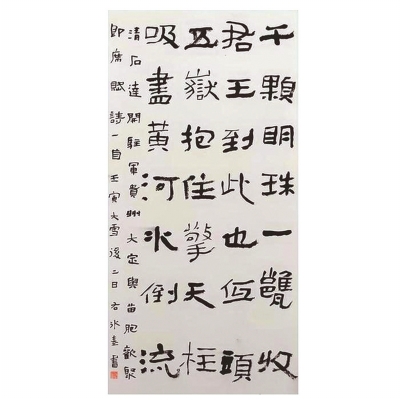 千顆明珠一甕收
君王到此也低頭
五嶽抱住擎天柱
吸盡黃河水倒流
清石達開駐軍貴州大定與苗胞歡聚
即席賦詩一首壬寅大雪後二日書